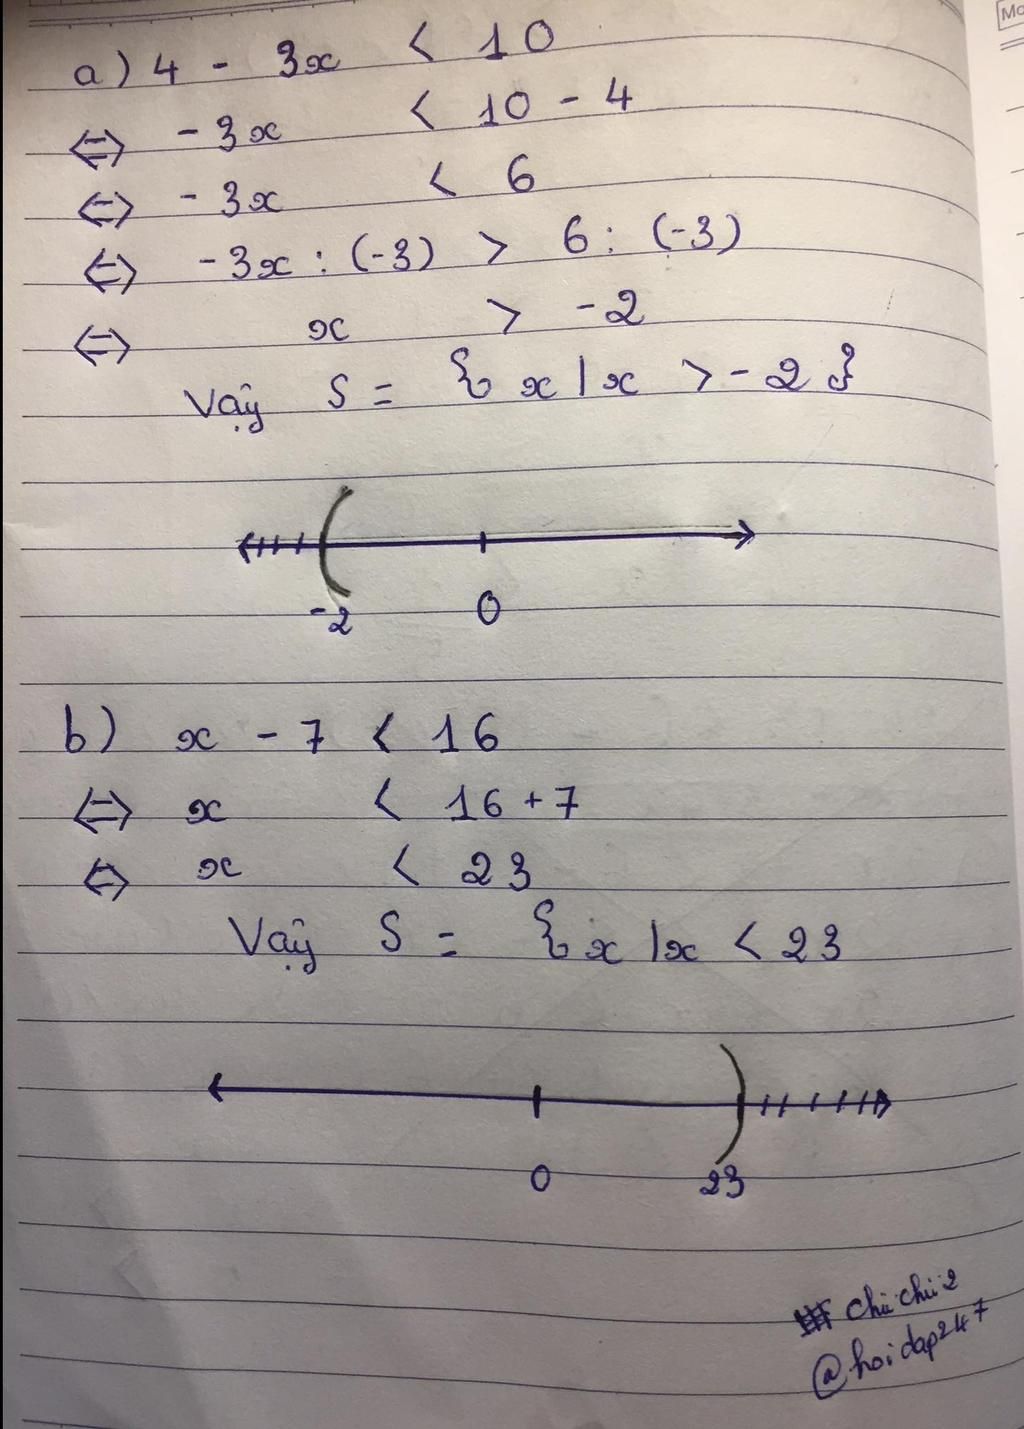 a) 4 - 3x < 10
⇔ - 3x < 10 - 4
⇔ - 3x < 6
⇔ -3x : (-3) > 6 : (-3)
⇔ x > -2
Vậy S = { x | x > -2 }
-2 0
b) x - 7 < 16
⇔ x < 16 + 7
⇔ x < 23
Vậy S = { x | x < 23
0 23
chuchu2
@hoidap247